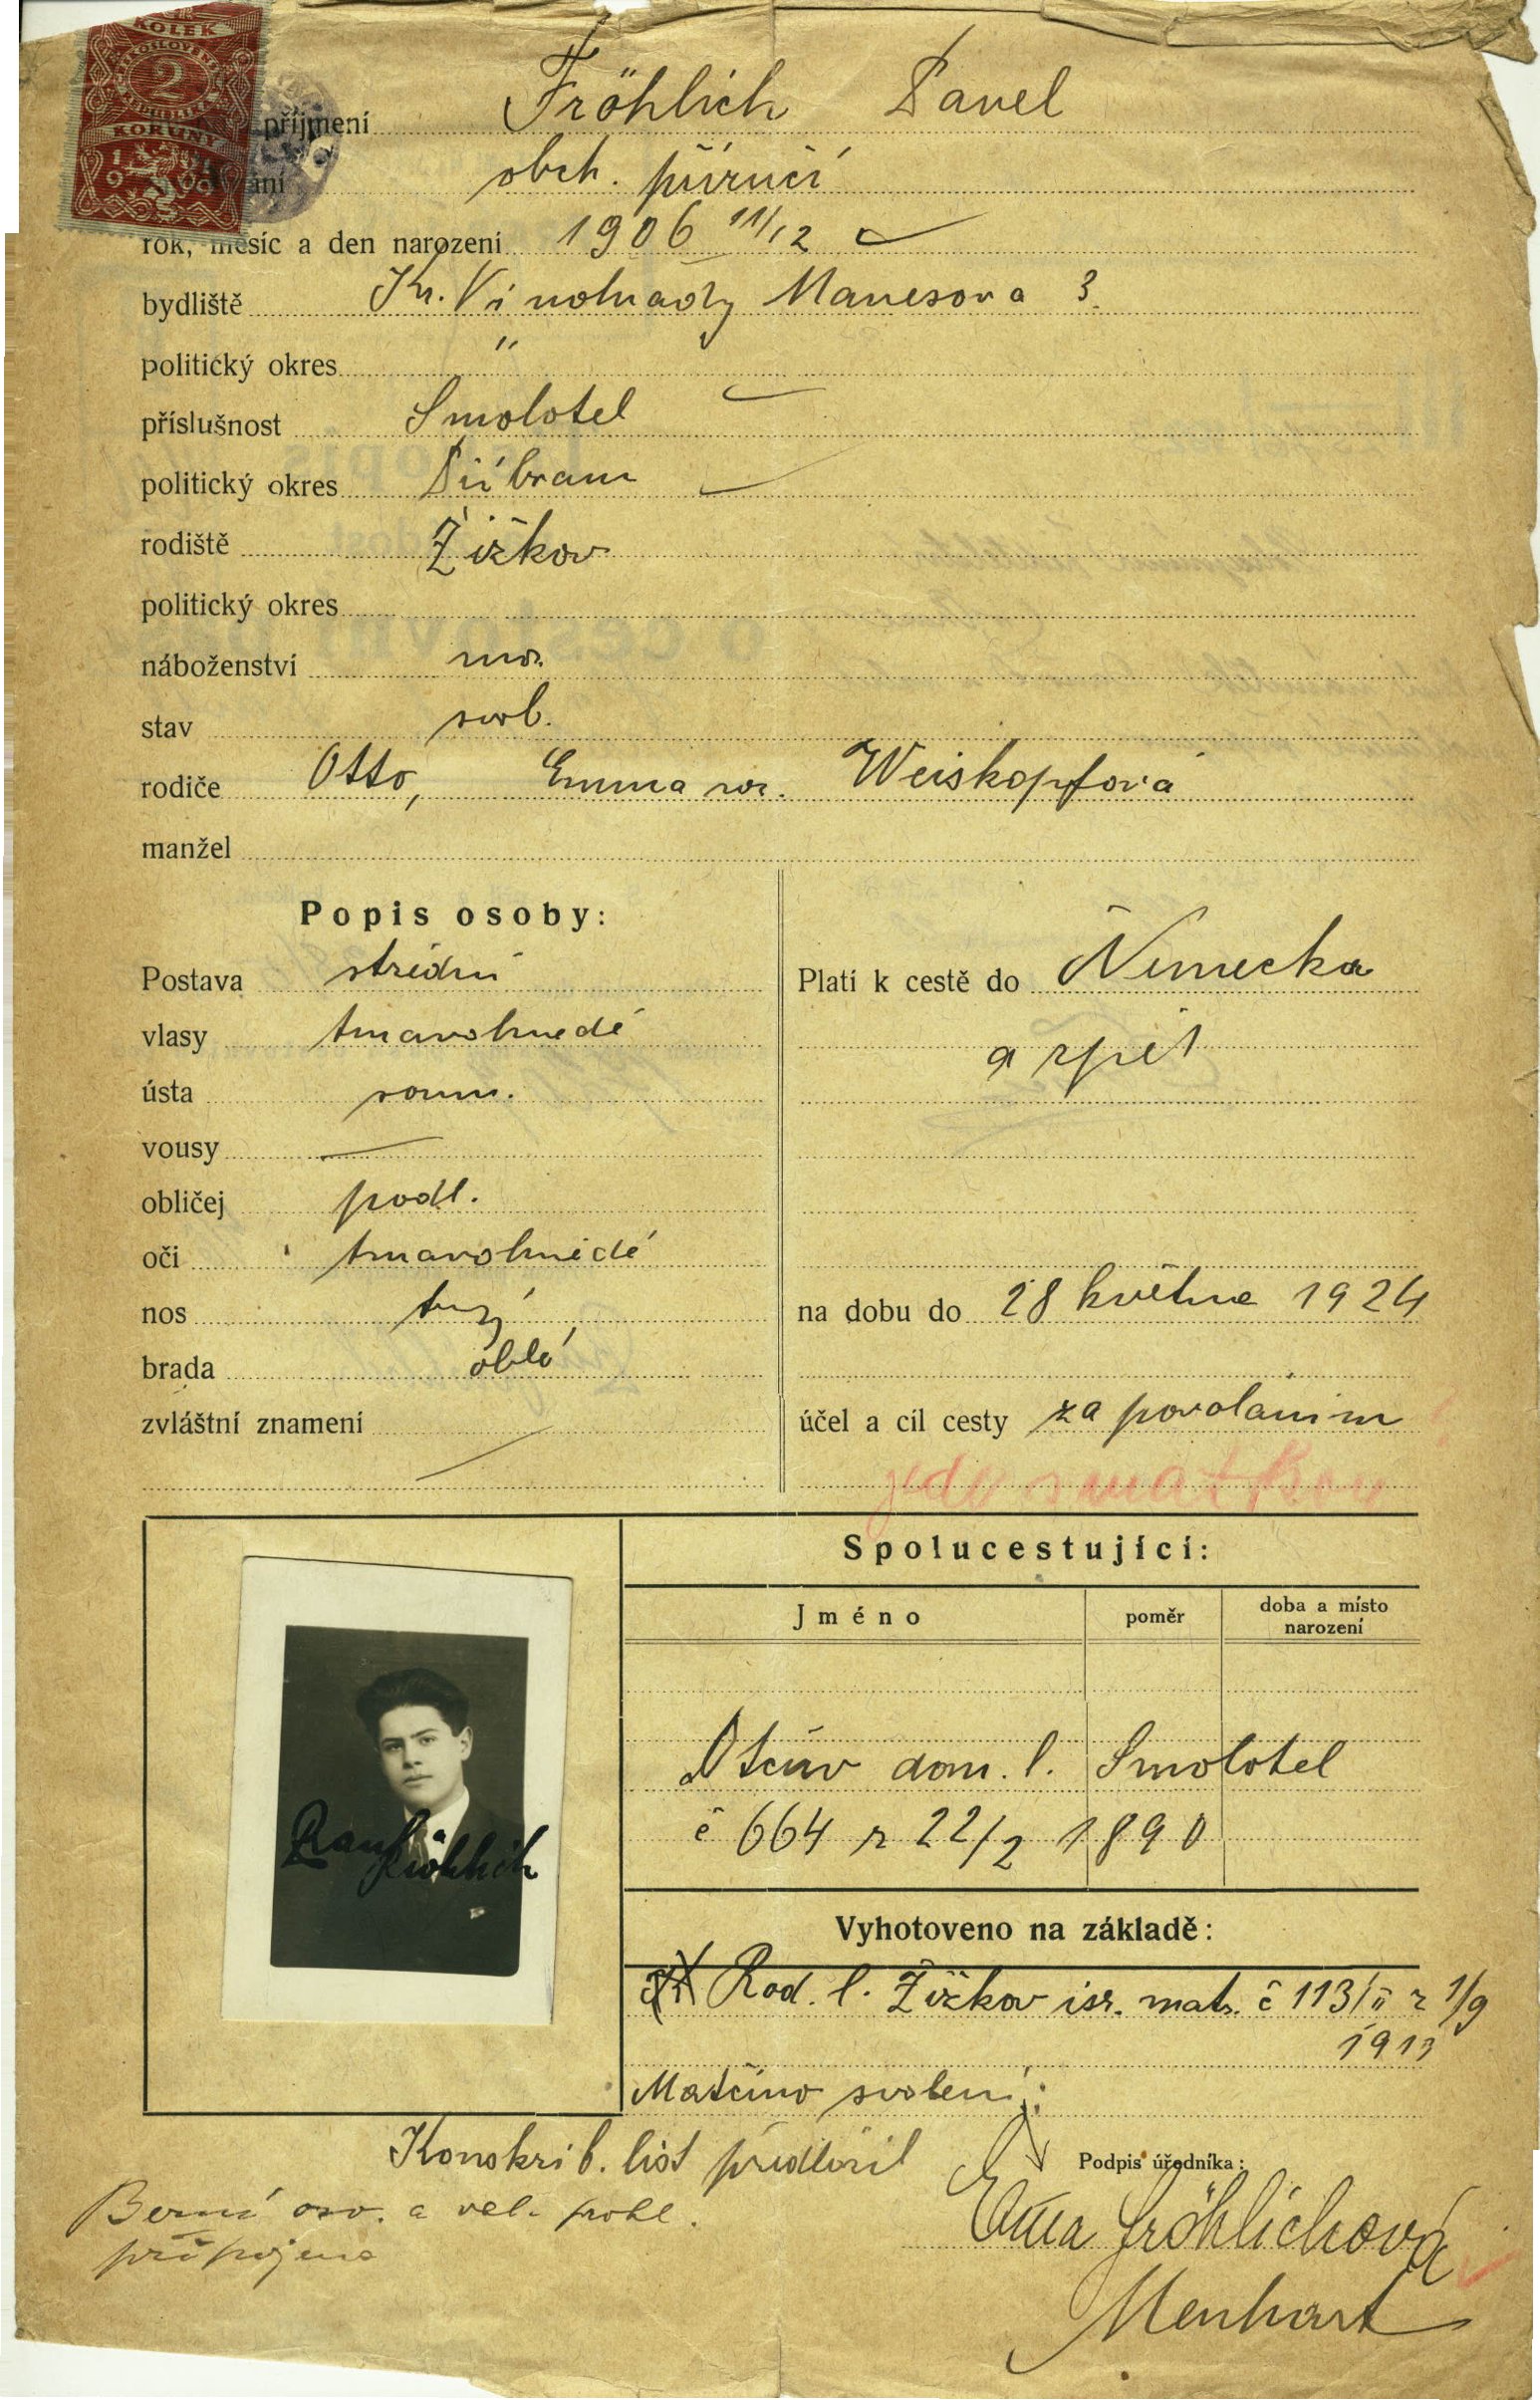 KOLEK
2
KORUNY
příjmení Fröhlich Pavel
obch. příručí
rok, měsíc a den narození 1906 11/12
bydliště Kr. Vinohrady Manesova 3.
politický okres "
příslušnost Smolotel
politický okres Příbram
rodiště Žižkov
politický okres
náboženství moz.
stav svob.
rodiče Otto, Emma roz. Weiskopfová
manžel
Popis osoby:
Postava střední
vlasy tmavohnedé
ústa soum.
vousy —
obličej podl.
oči tmavohnědé
nos
brada oblá
zvláštní znamení
Platí k cestě do Německa
a zpět
na dobu do 28 května 1924
účel a cíl cesty za povoláním
jede s matkou
Spolucestující:
Jméno poměr doba a místo narození
Otcův dom. l. Smolotel
č 664 z 22/2 1890
Fröhlich
Vyhotoveno na základě:
Rod. l. Žižkov isr. matr. č 113/II z 1/9
1913
Matčino svolení:
Konskrib. list předložil
Podpis úředníka:
Berní osv. a vel. prohl.
připojeno
Ema Fröhlichová
Menhart